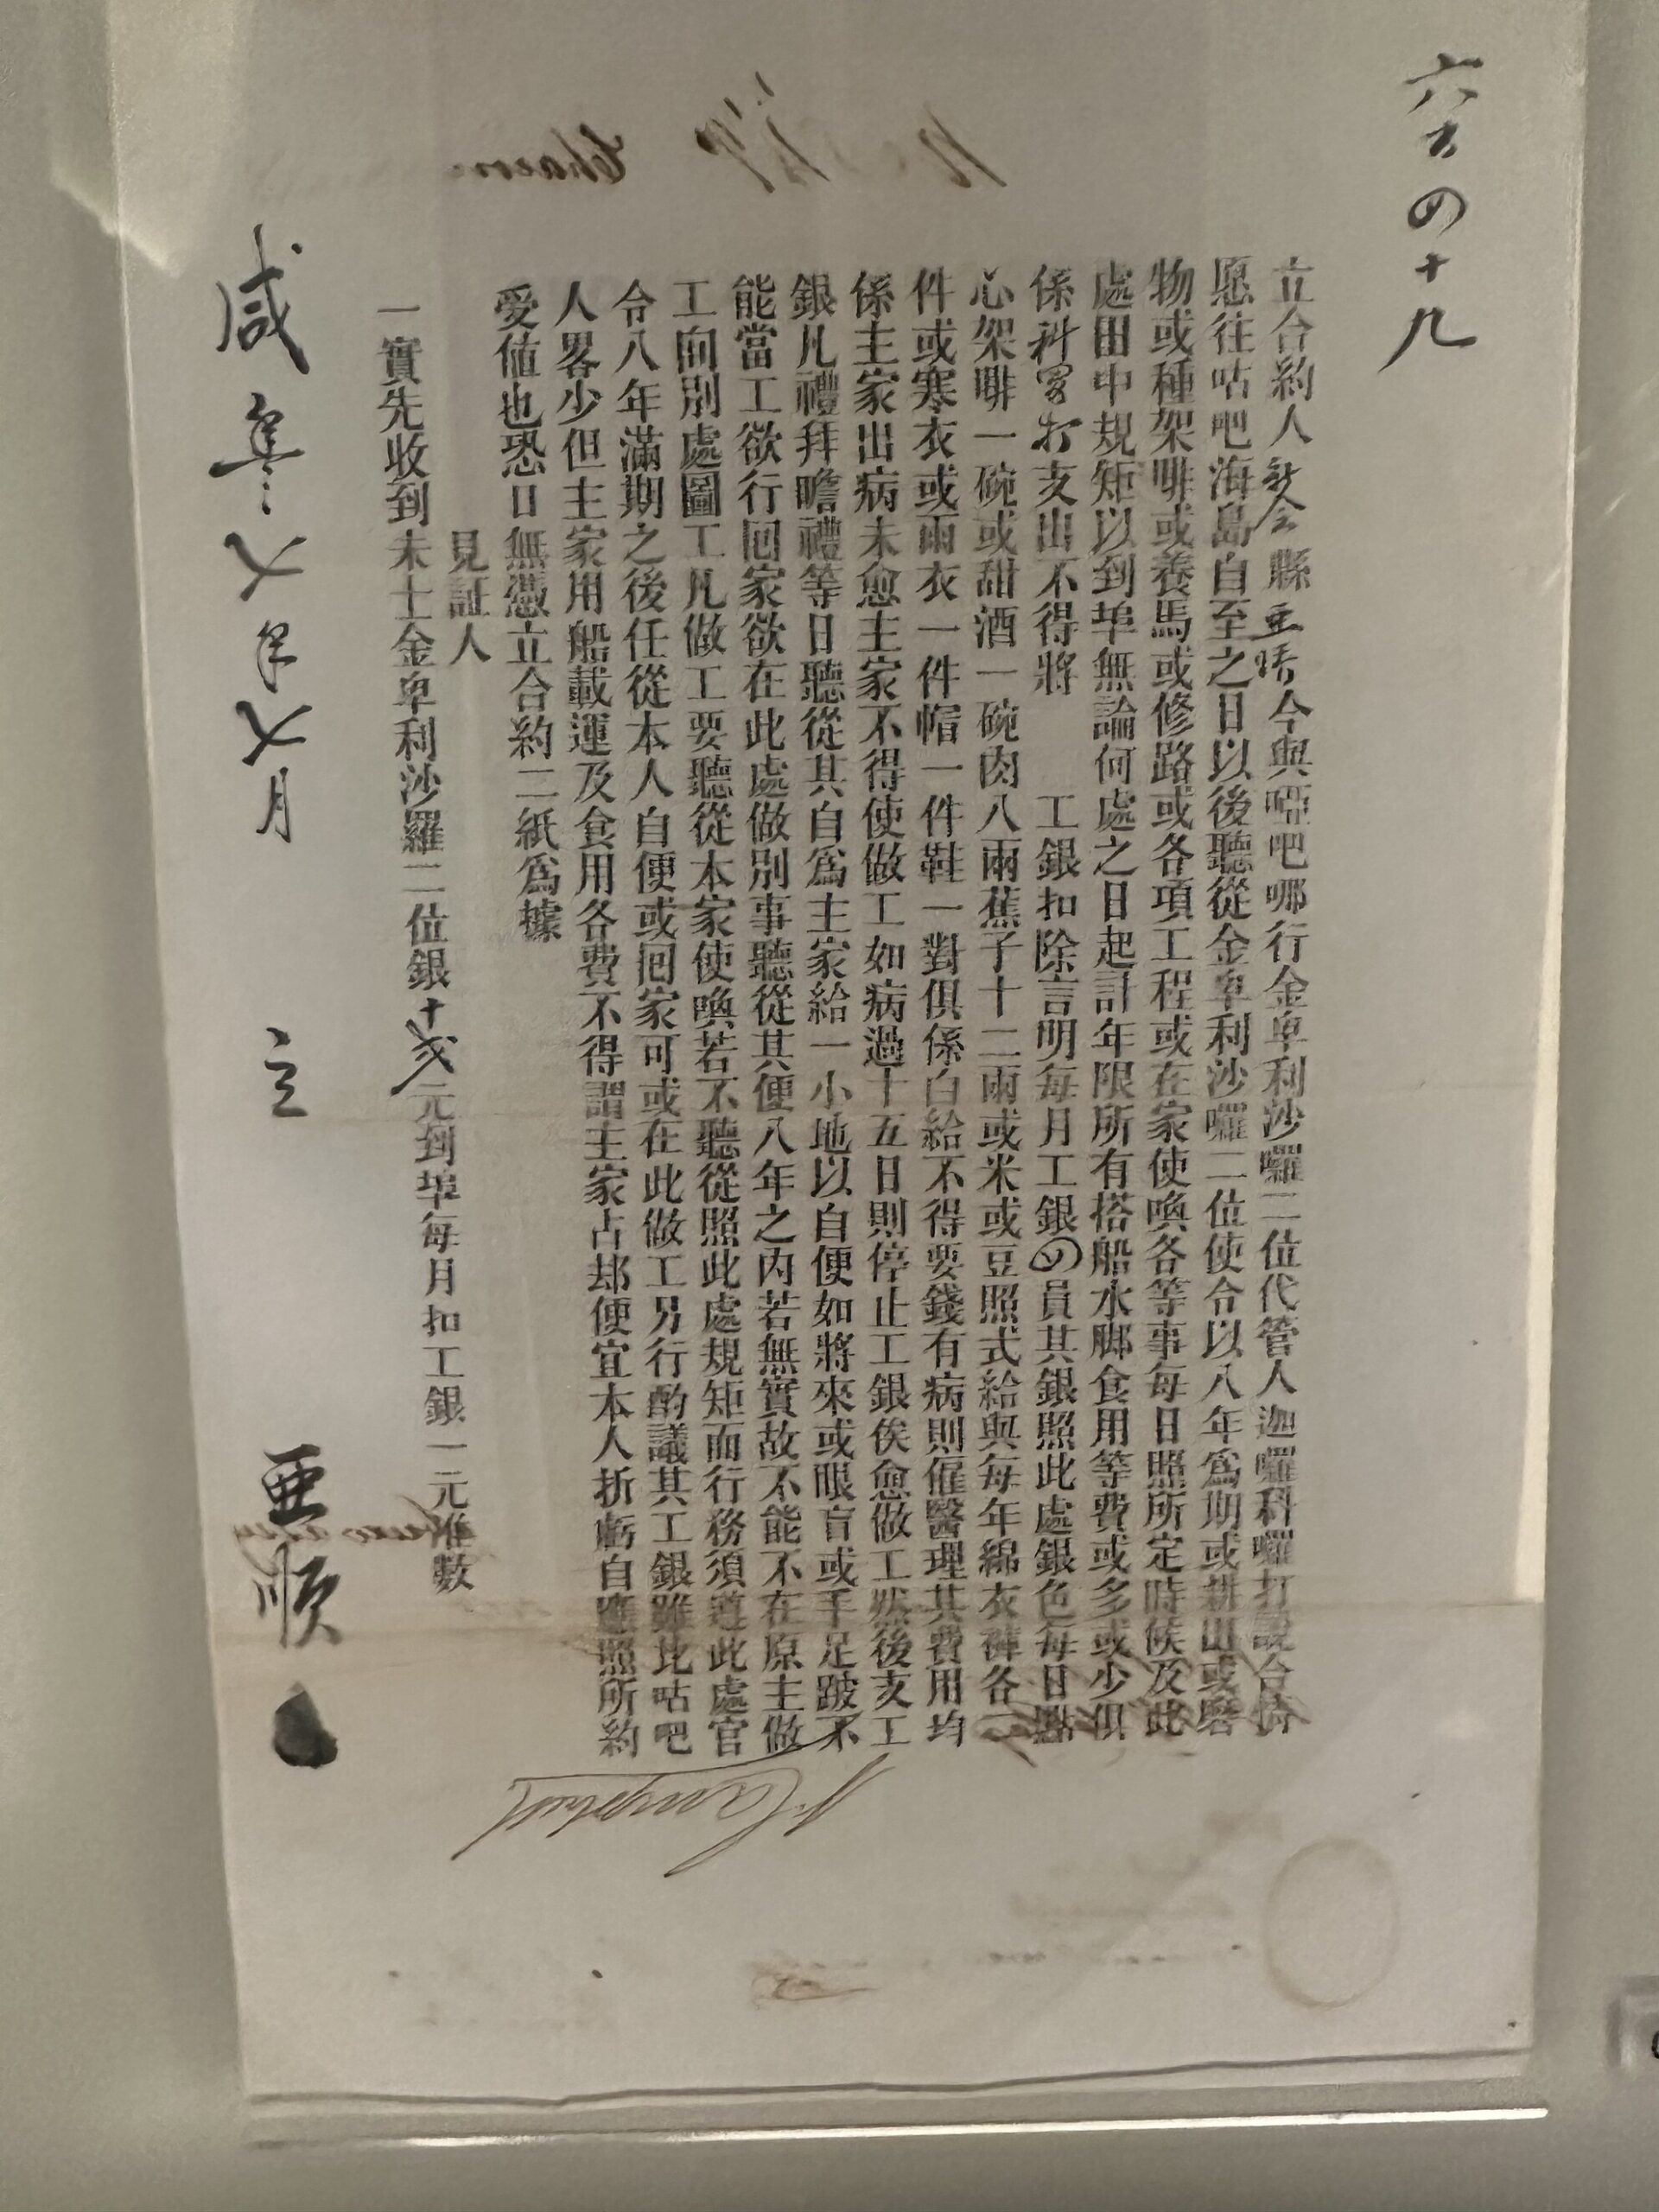 六百四十九
立合約人新会縣亚將今與啞吧哪行金卑利沙囉二位代管人迦囉科囉打說合情
愿往咕吧海島自至之日以後聽從金卑利沙囉二位使令以八年爲期或耕田或磨
物或種架啡或養馬或修路或各項工程或在家使喚各等事每日照所定時候及此
處田中規矩以到埠無論何處之日起計年限所有搭船水脚食用等費或多或少俱
係科囉打支出不得將 工銀扣除言明每月工銀四員其銀照此處銀色每日點
心架啡一碗或甜酒一碗肉八兩蕉子十二兩或米或豆照式給與每年綿衣褲各二
件或寒衣或雨衣一件帽一件鞋一對俱係白給不得要錢有病則催醫理其費用均
係主家出病未愈主家不得使做工如病過十五日則停止工銀俟愈做工然後支工
銀凡禮拜瞻禮等日聽從其自爲主家給一小地以自便如將來或眼盲或手足跛不
能當工欲行囘家欲在此處做別事聽從其便八年之內若無實故不能不在原主做
工面別處圖工凡做工要聽從本家使喚若不聽從照此處規矩而行務須遵此處官
令八年滿期之後任從本人自便或囘家可或在此做工另行酌議其工銀雖比咕吧
人畧少但主家用船載運及食用各費不得謂主家占却便宜本人折虧自應照所約
愛値也恐口無憑立合約二紙爲據
見証人
一實先收到未士金卑利沙羅二位銀十弍元到埠每月扣工銀一元准數
咸豐七年七月 立 亜順